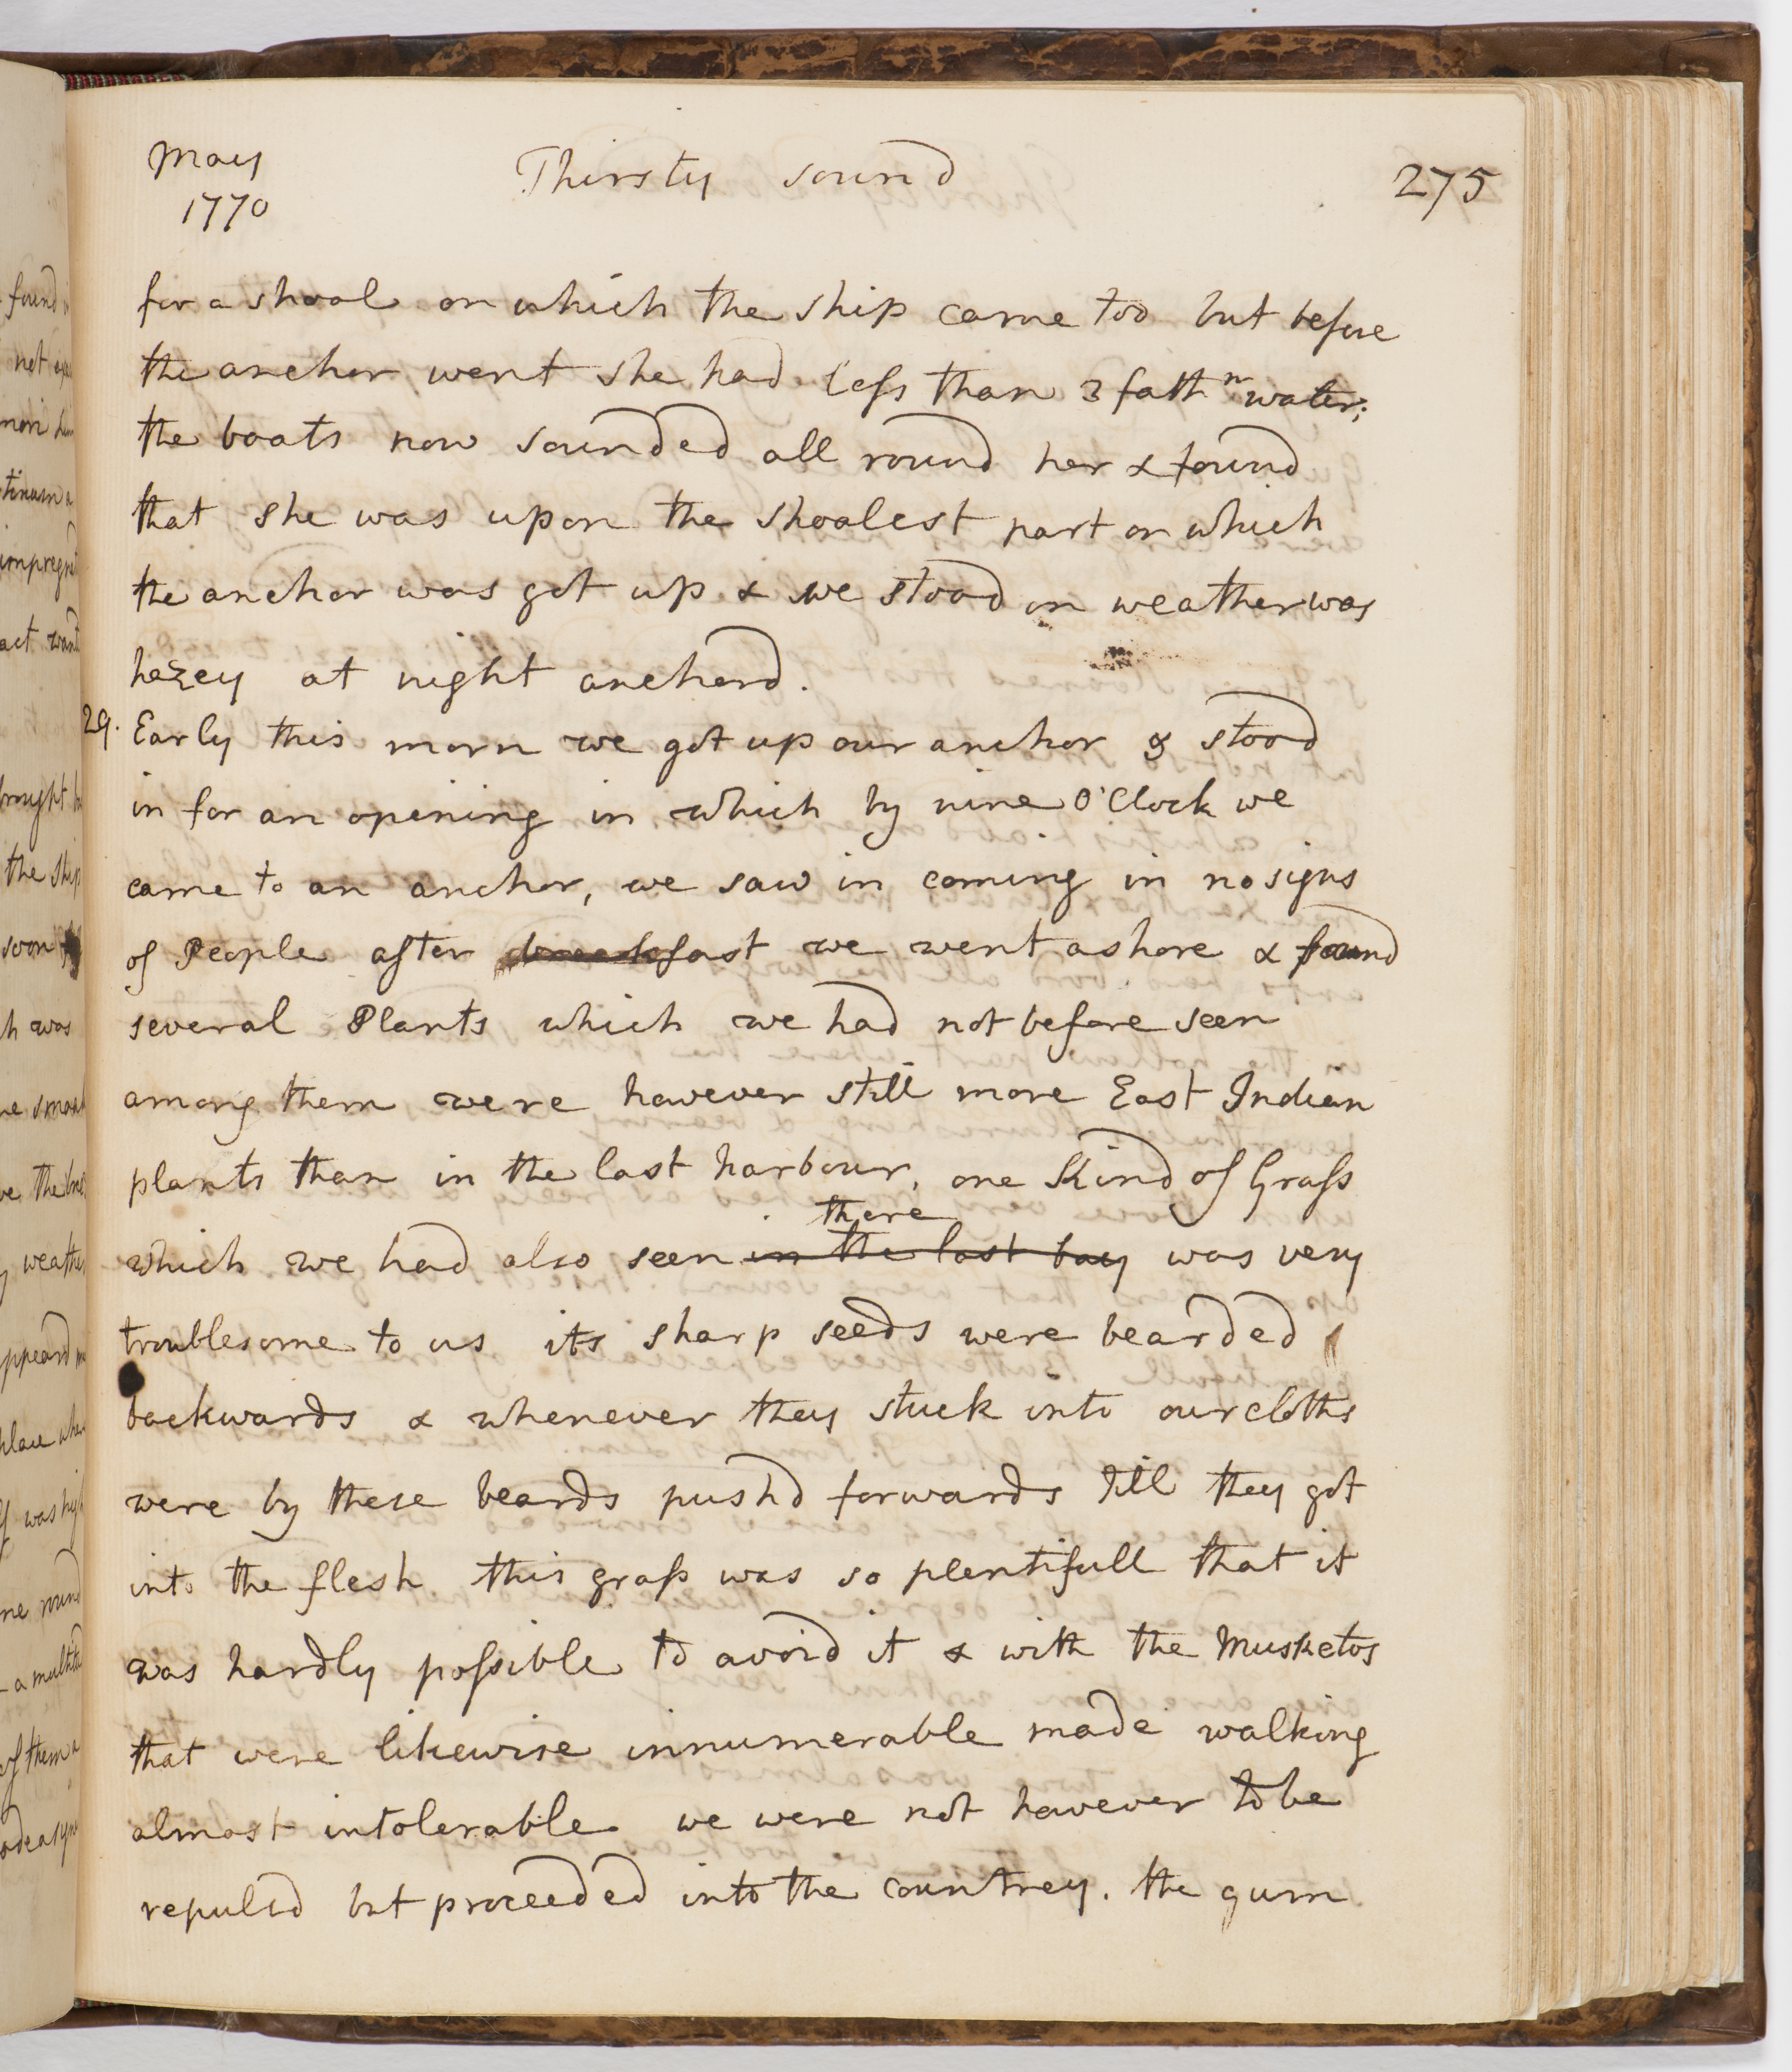 May
1770
Thirsty sound
275
for a shoal on which the ship came too but before
the anchor went she had less than 3 fath<sup>m</sup> water;
the boats now sounded all round her & found
that she was upon the shoalest part on which
the anchor was got up & we stood on weather was
hazey at night anchord.
29. Early this morn we got up our anchor & stood
in for an opening in which by nine O'Clock we
came to an anchor, we saw in coming in no signs
of People after breakfast we went ashore & found
several Plants which we had not before seen
among them were however still more East Indian
plants than in the last harbour, one Kind of Grass
there
which we had also seen in the last bay was very
troublesome to us its sharp seeds were bearded
backwards & whenever they stuck into our cloths
were by these beards pushd forwards till they got
into the flesh. this grass was so plentifull that it
was hardly possible to avoid it & with the Musketos
that were likewise innumerable made walking
almost intolerable. we were not however to be
repulsd but proceeded into the countrey. the gum